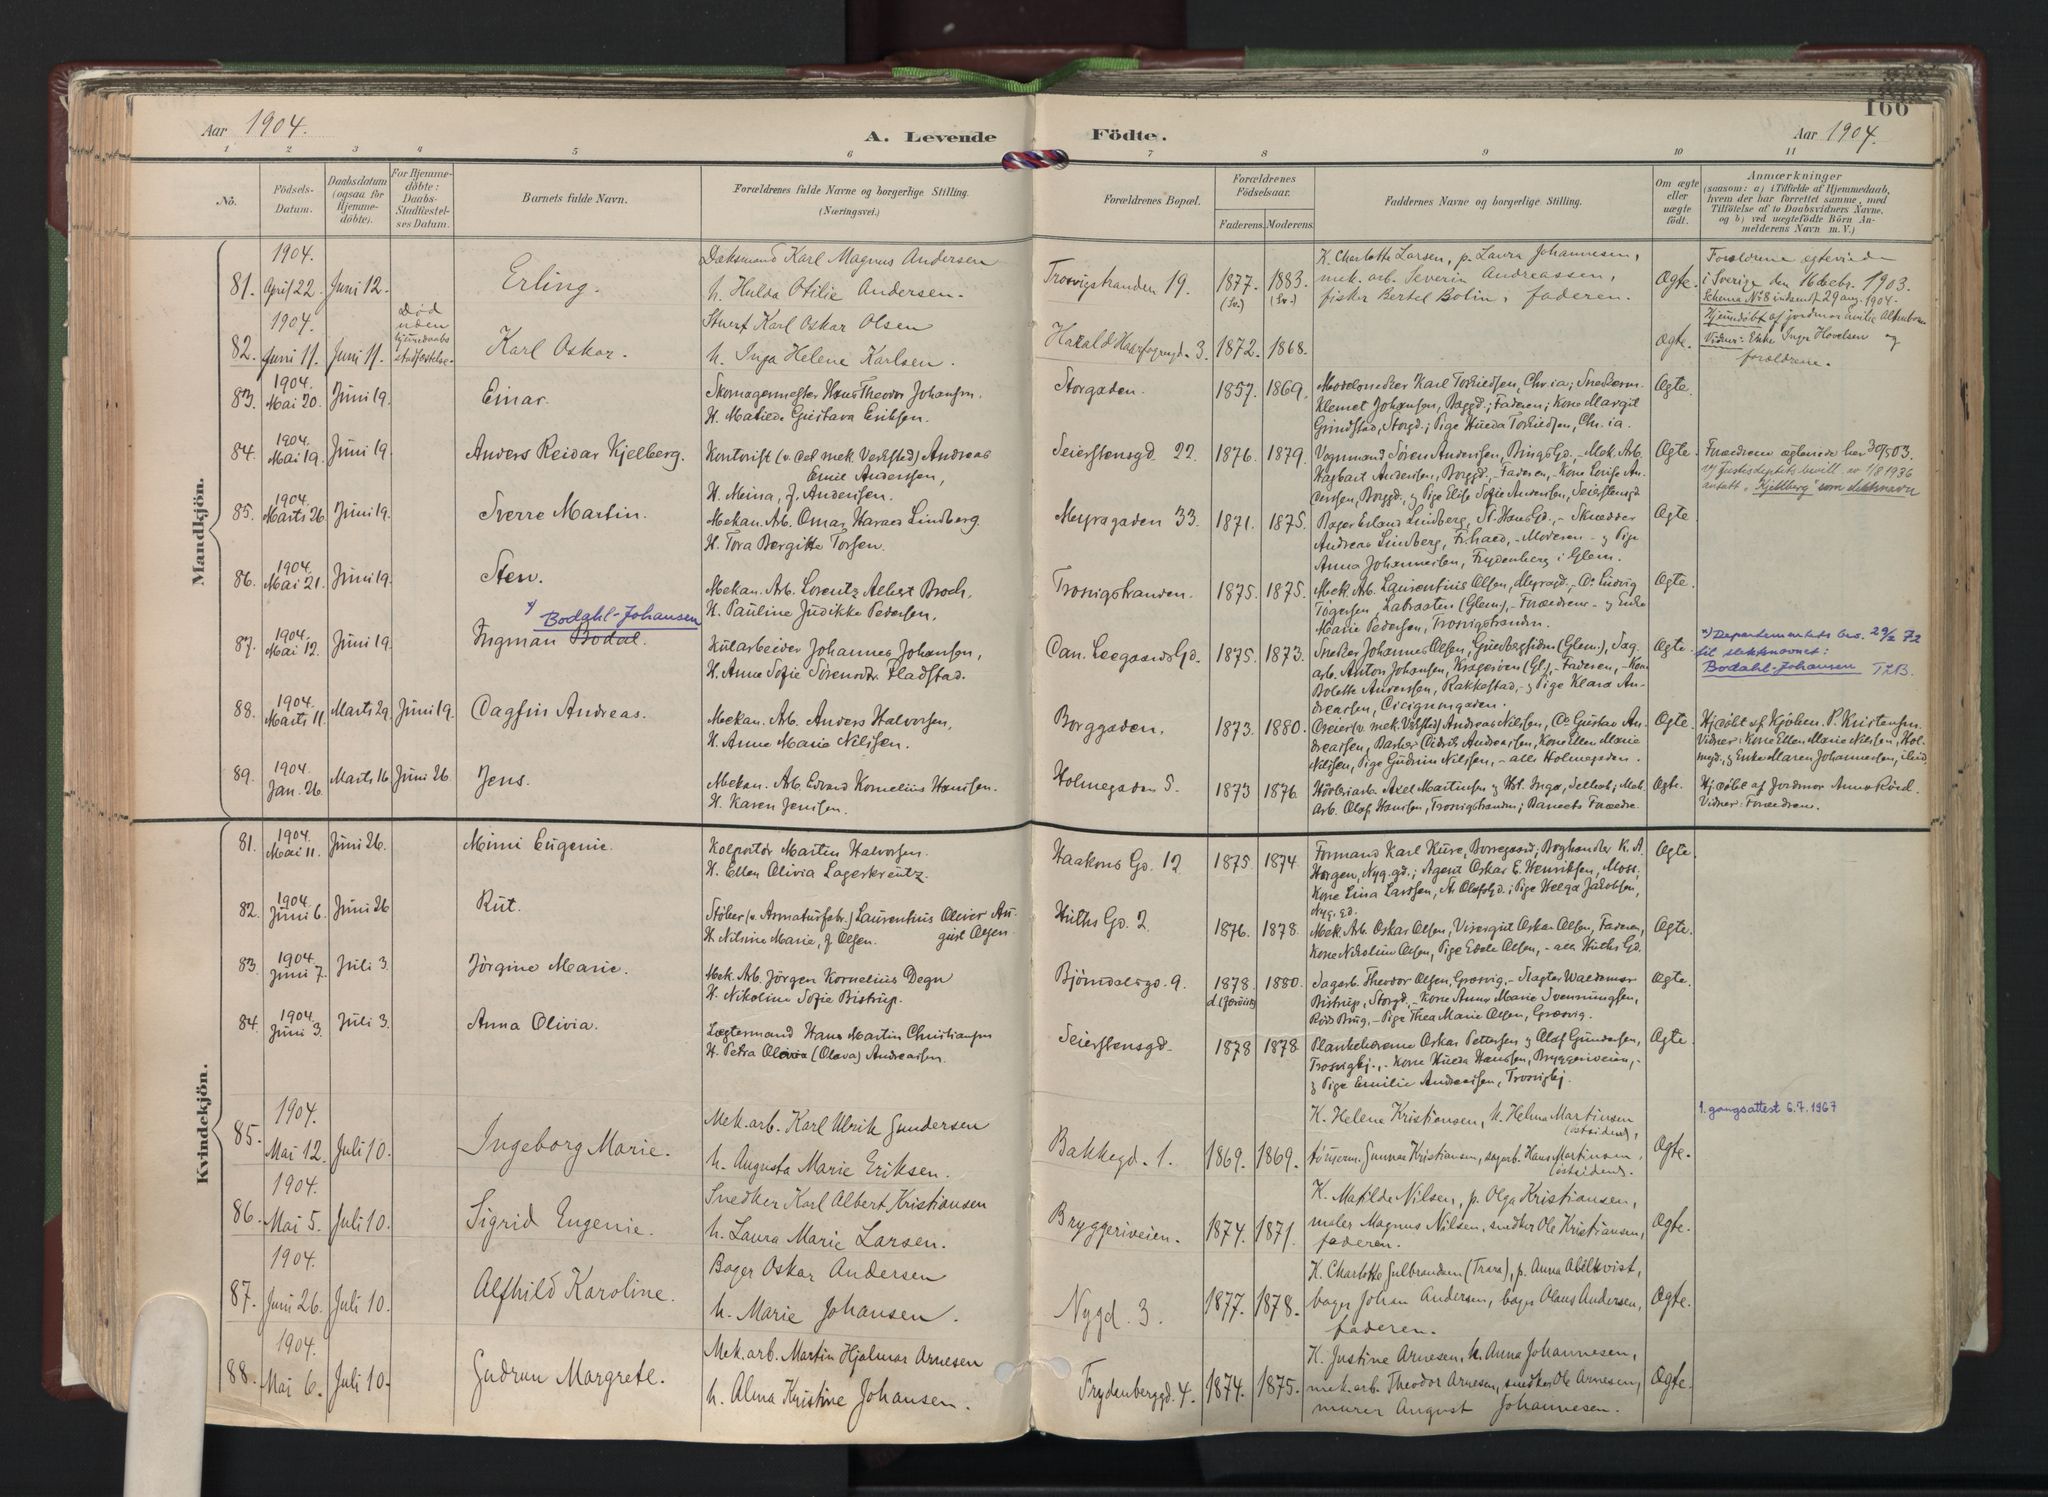 166
Aar 1904.
A. Levende Födte.
Aar 1904.
1 2 3 4 5 6 7 8 9 10 11
No.
Födsels-
Datum.
Daabsdatum
(ogsaa for
Hjemme-
döbte).
For Hjemme-
döbte:
Daabs-
Stadfæstel-
ses Datum.
Barnets fulde Navn.
Forældrenes fulde Navne og borgerlige Stilling.
(Næringsvei.)
Forældrenes Bopæl.
Forældrenes
Födselsaar.
Faderens. Moderens.
Faddernes Navne og borgerlige Stilling.
Om ægte
eller
uægte
födt.
Anmærkninger
(saasom: a) i Tilfælde af Hjemmedaab,
hvem der har forrettet samme, med
Tilföielse af to Daabsvidners Navne,
og b) ved uegtefödte Börn An-
melderens Navn m. V.)
Mandkjön.
1904.
81. April 22. Juni 12.
Erling.
Karl Magnus Andersen
h. Hulda Otilie Andersen.
Trosvigstranden 19.
1877. 1883.
(Sv.) (Sv.)
K. Charlotte Larsen, p. Laura Johannesen,
mek. arb. Severin Andreassen,
fisker Bertel Bolin, faderen.
Ægte.
Forældrene ægteviede
i Sverige den 16 debr. 1903.
Schema No 8 indsendt 29 aug. 1904.
1904.
82. Juni 11. Juni 11.
Død
uden
hjemmedaabs
stadfæstelse.
Karl Oskar.
Stuert Karl Oskar Olsen
h. Inga Helene Karlsen.
Harald Haarfagresgd. 3.
1872. 1868.
Ægte.
Hjemdöbt af jordmor
Vidner: Enke Inge Hovelsen og
forældrene.
1904.
83. Mai 20. Juni 19.
Einar.
Skomagermester Hans Theodor Johansen.
H. Matilde Gustava Eriksen.
Storgaden.
1857. 1869.
Modelsnedker Karl Torkildsen, Chr.ia; Snedkerm.
Klemet Johansen, Baggd.; Faderen; Kone Margit
Grindstad, Storgd.; Pige Hulda Torkildsen, Chr.ia.
Ægte.
1904.
84. Mai 19. Juni 19.
Anders Reidar Kjelberg.
Kontorist (v. mek. Verksted) Andreas
Emil Anderssen,
H. Mina, f. Anderssen.
Seierstensgd. 22.
1876. 1879.
Vognmand Sören Anderssen, - Mek. Arb.
Hagbart Anderssen, Borggd. - Faderen, - Kone Lovise An-
derssen, Borggd., & Pige Elise Sofie Anderssen, Seierstensgd.
Ægte.
Forældrene ægteviede her 30/5 03.
v/ Justisdeptets bevill. av 1/8 1936
antatt „Kjellberg" som slektsnavn
1904.
85. Marts 26. Juni 19.
Sverre Martin.
Mekan. Arb. Omar Harald Lindberg
H. Tora Bergitte Torsen.
Myragaden 33.
1871. 1875.
Bager Erland Lindberg, St. Hans Gd., - Skrædder
Andreas Lindberg, Fr.hald, - Moderen - & Pige
Anna Johannessen, Frydenberg i Glem.
Ægte.
1904.
86. Mai 21. Juni 19.
Sten.
Mekan. Arb. Lorentz Albert Broch.
H. Pauline Judikke Pedersen,
Trosvigstranden.
1875. 1875.
Mek. Arb. Laurentius Olsen, Myragd., - Do Ludvig
Tögersen, Labraaten (Glem), - Forældrene - & Enke
Marie Pedersen, Trosvigstranden.
Ægte.
1904.
87. Mai 12. Juni 19.
x) Bodahl-Johansen
Ingman Bodal.
Kularbeider Johannes Johansen,
H. Anne Sofie Sörensdtr. Fladstad.
Dan. Leegaards Gd.
1875. 1873.
Snedker Johannes Olsen, (Glem), Sag.
arb. Anton Johansen, Krageröen (Gl.), - Faderen, - Kone
Bolette Anderssen, Rakkestad, - & Pige Klara An-
dreassen, Cicignongaden.
Ægte.
x) Departementets bev. 29/2 72
til slektsnavnet:
Bodahl-Johansen TLB.
1904.
88. Marts 11. Marts 29. Juni 19.
Dagfin Andreas.
Mekan. Arb. Anders Halvorsen,
H. Anne Marie Nilssen.
Borggaden.
1873. 1880.
Dreier (v. mek. Vksted) Andreas Nilssen, Do Gustav An-
dreassen, Barber Didrik Andreassen, Kone Ellen Marie
Nilssen, Pige Gudrun Nilssen, - alle Holmegaden.
Ægte.
Hj.döbt af Kjöbm. P. Kristensen.
Vidner: Kone Ellen Marie Nilssen, Hol-
megd., & Enke Maren Johannessen,
1904.
89. Jan. 26. Marts 16. Juni 26.
Jens.
Mekan. Arb. Edvard Kornelius Hanssen.
H. Karen Jenssen.
Holmegaden 5.
1873 1876.
Hövleriarb. Axel Martinsen & Hst. Inga, Mek.
Arb. Olaf Hanssen, Trosvigstranden; Barnets Forældre.
Ægte.
Hj.döbt af Jordmor Anna
Vidner: Forældrene.
Kvindekjön.
1904.
81. Mai 11. Juni 26.
Mimi Eugenie.
Kolportör Martin Halvorsen.
H. Ellen Olivia Lagerkreutz.
Haakons Gd. 12
1875 1874.
Formand Karl Kure, Borregaard; Boghandler K. A.
Horgen, Nyg.gd.; Agent Oskar E. Henriksen, Moss;
Kone Lina Larssen, St. Olafsgd.; Pige Helga Jakobsen,
Nyg. gd.
Ægte.
1904.
82. Juni 6. Juni 26
Rut.
Stöber (v. Armaturfabr.) Laurentius Oliver Au-
gust Olsen
H. Nilsine Marie, f. Olsen.
Huths Gd. 2.
1876. 1878.
Mek. Arb. Oskar Olsen, Visergut Oskar Olsen, Faderen,
Kone Nikoline Olsen, Pige Edele Olsen, - alle Huths Gd.
Ægte.
1904.
83. Juni 7. Juli 3.
Jörgine Marie.
Mek. Arb. Jörgen Kornelius Degn
H. Nikoline Sofie Bistrup.
Björndalsgd. 9.
1878 1880.
Sagarb. Theodor Olsen, Græsvig, - Slagter Waldemar
Bistrup, Storgd., - Kone Anne Marie Svenningsen,
Röds Brug, - Pige Thea Marie Olsen, Græsvig.
Ægte.
1904.
84. Juni 3. Juli 3.
Anna Olivia.
Lægtermand Hans Martin Christiansen
H. Petra Olivia (Olava) Andreassen.
Seierstensgd.
1878 1878.
Plankebærerne Oskar Pettersen & Olaf Gundersen,
Trosvigbj., - Kone Hulda Hanssen, Bryggeriveien, -
& Pige Emilie Andreassen, Trosvigbj.
Ægte.
1904.
85. Mai 12. Juli 10.
Ingeborg Marie.
Mek. arb. Karl Ulrik Gundersen
h. Augusta Marie Eriksen.
Bakkegd. 1.
1869. 1869.
K. Helene Kristiansen, h. Helma Martinsen
(östsiden),
tömerm. Gunnar Kristiansen, sagarb. Hans Martinsen,
(östsiden).
Ægte.
1. gangsattest 6.7.1967
1904.
86. Mai 5. Juli 10.
Sigrid Eugenie.
Snedker Karl Albert Kristiansen
h. Laura Marie Larsen.
Bryggeriveien.
1874. 1871.
K. Matilde Nilsen, p. Olga Kristiansen,
maler Magnus Nilsen, snedker Ole Kristiansen,
faderen.
Ægte.
1904.
87. Juni 26. Juli 10.
Alfhild Karoline.
Bager Oskar Andersen
h. Marie Johansen.
Nygd. 3.
1877. 1878.
K. Charlotte Gulbrandsen (Trara), p. Anna Abelkvist,
bager Johan Andersen, bager Olaus Andersen,
faderen.
Ægte.
1904.
88. Mai 6. Juli 10.
Gudrun Margrete.
Mek. arb. Martin Hjalmar Arnesen
h. Alma Kristine Johansen.
Frydenberggd. 4.
1874. 1875.
K. Justine Arnesen, h. Anna Johannesen,
mek. arb. Theodor Arnesen, snedker Ole Arnesen,
murer August Johannesen.
Ægte.